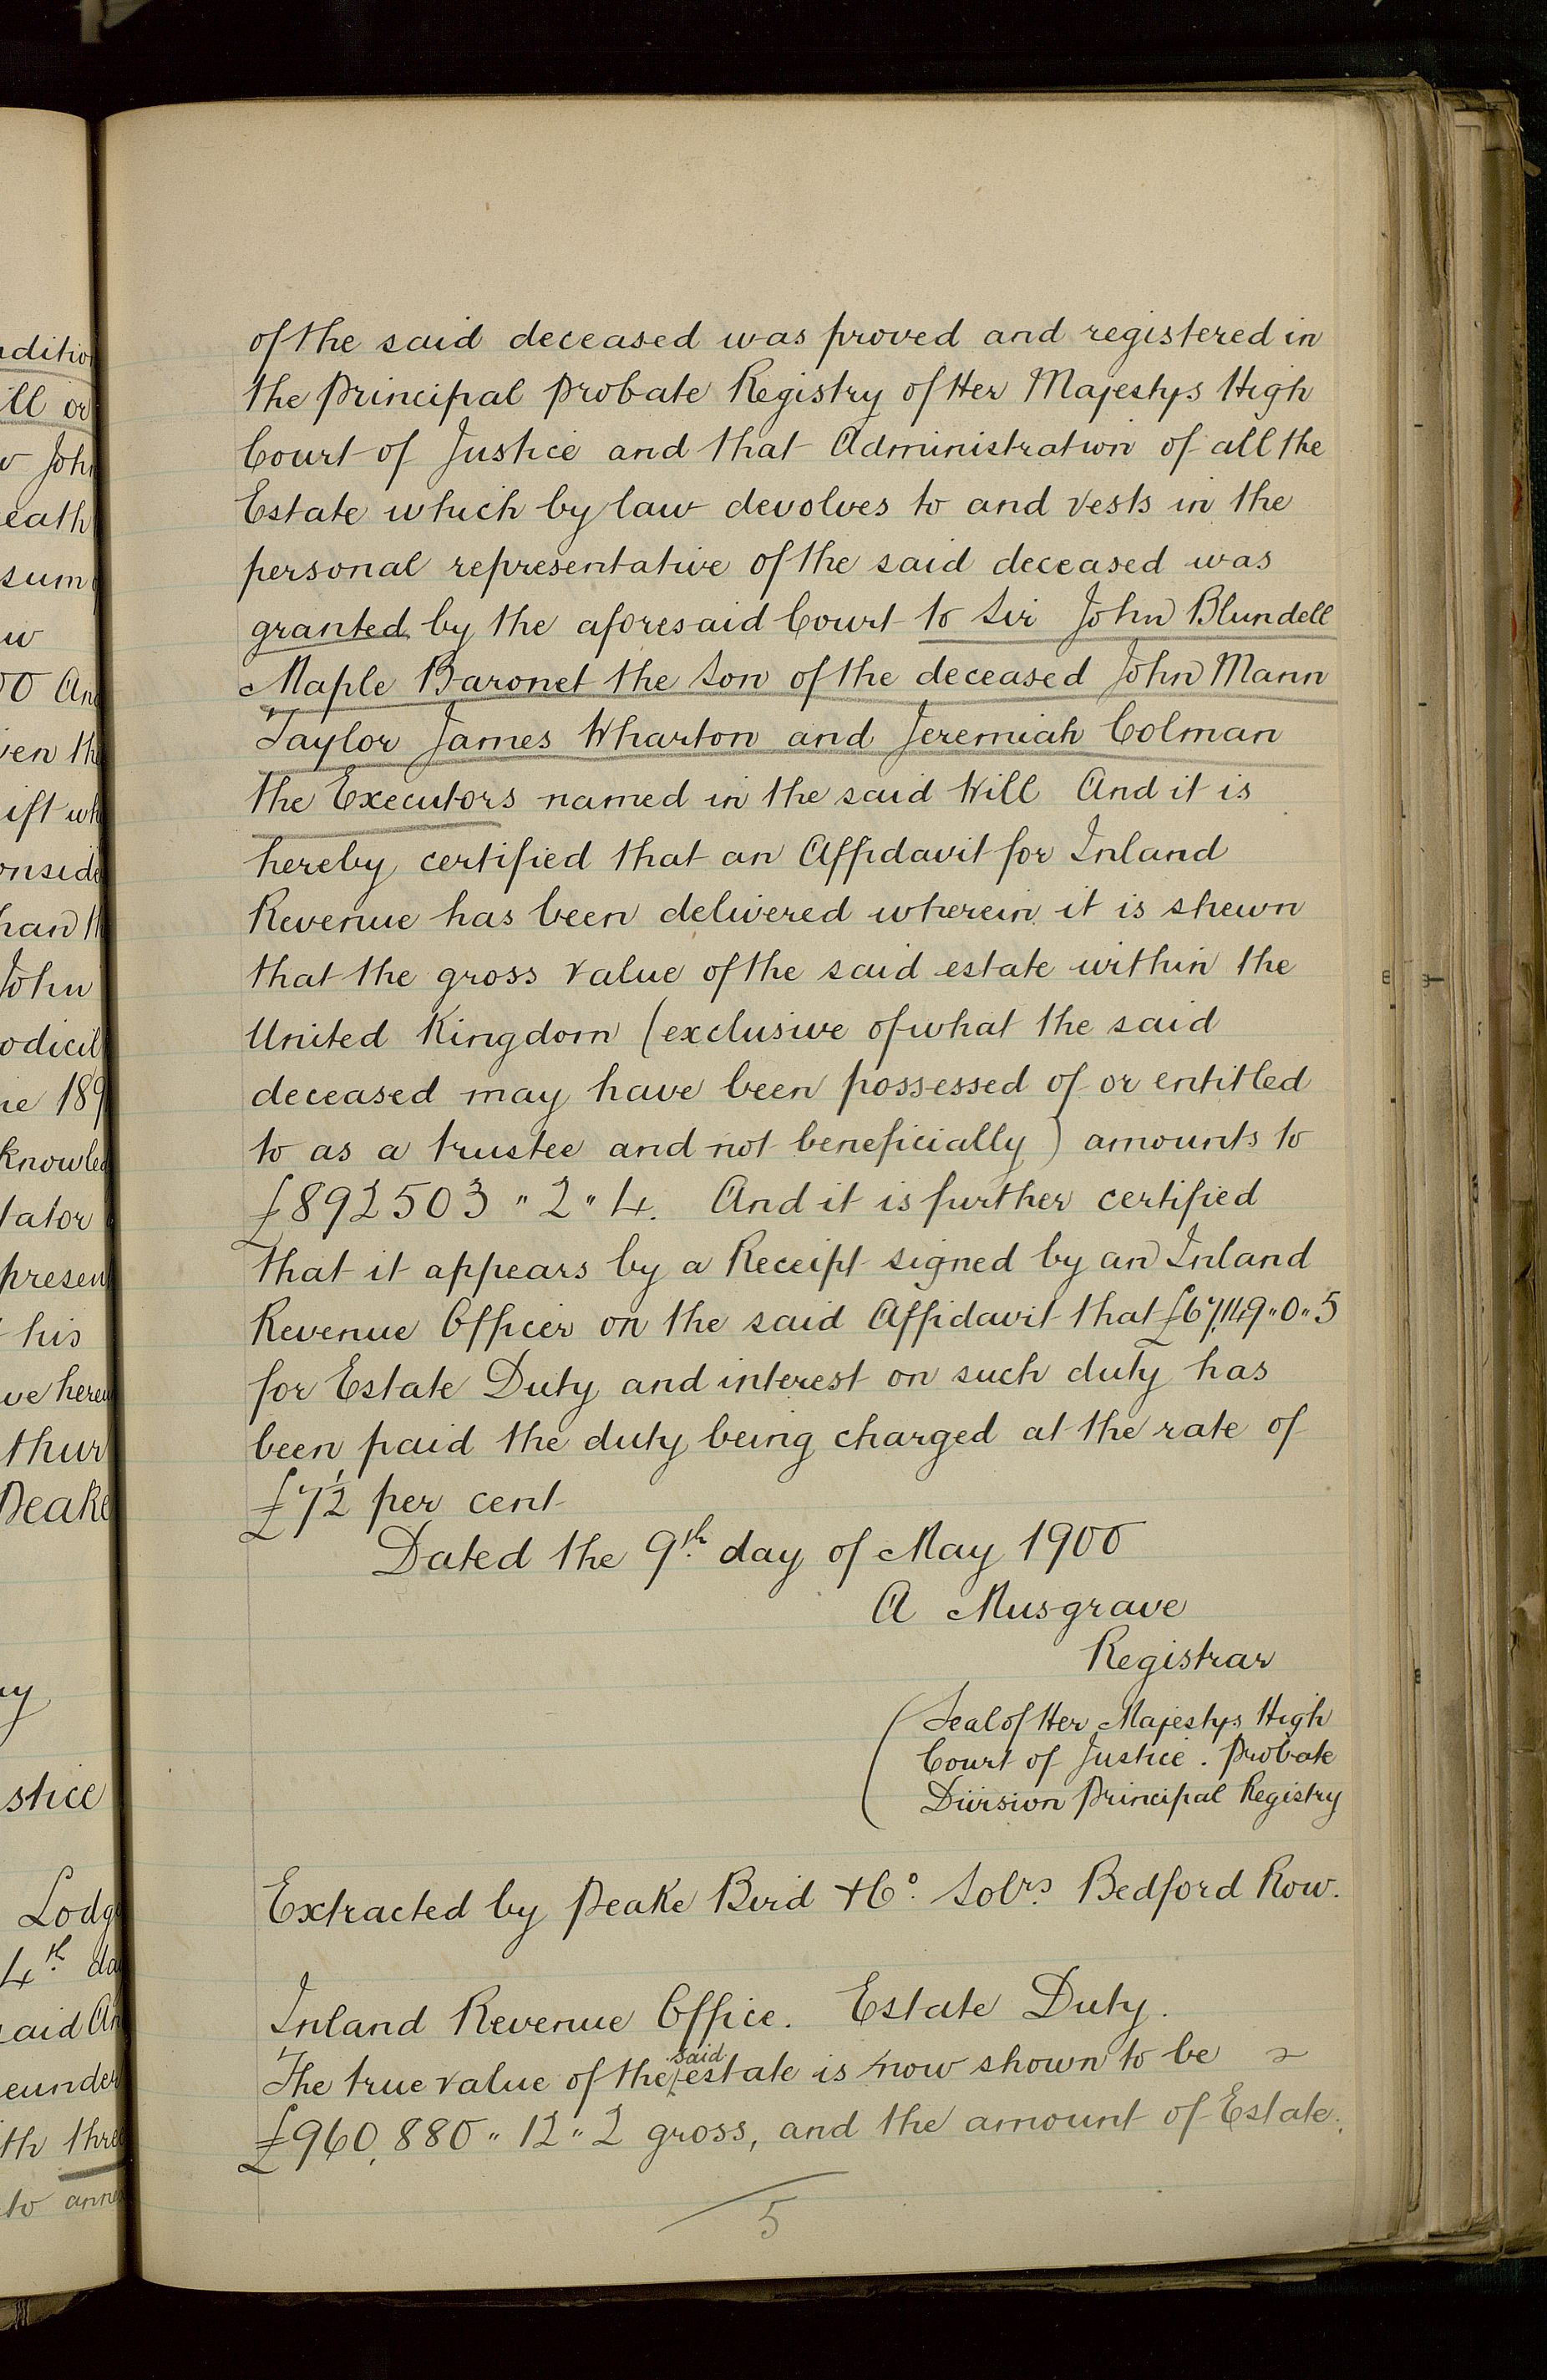 of the said deceased was proved and registered in
the Principal Probate Registry of Her Majestys High
Court of Justice and that Administration of all the
Estate which by law devolves to and vests in the
personal representative of the said deceased was
granted by the aforesaid Court to Sir John Blundell
Maple Baronet the Son of the deceased John Mann
Taylor James Wharton and Jeremiah Colman
the Executors named in the said Will And it is
hereby certified that an Affidavit for Inland
Revenue has been delivered wherein it is shewn
that the gross value of the said estate within the
United Kingdom (exclusive of what the said
deceased may have been possessed of or entitled
to as a trustee and not beneficially) amounts to
£892503 " 2 " 4. And it is further certified
that it appears by a Receipt signed by an Inland
Revenue Officer on the said Affidavit that £67,149 " 0 " 5
for Estate Duty and interest on such duty has
been paid the duty being charged at the rate of
£7½ per cent
Dated the 9th day of May 1900
A Musgrave
Registrar
(Seal of Her Majestys High
Court of Justice. Probate
Division Principal Registry
Extracted by Peake Bird & Co. Solrs Bedford Row.
Inland Revenue Office. Estate Duty.
The true value of the said estate is now shown to be
£960,880 " 12 " 2 gross, and the amount of Estate
5